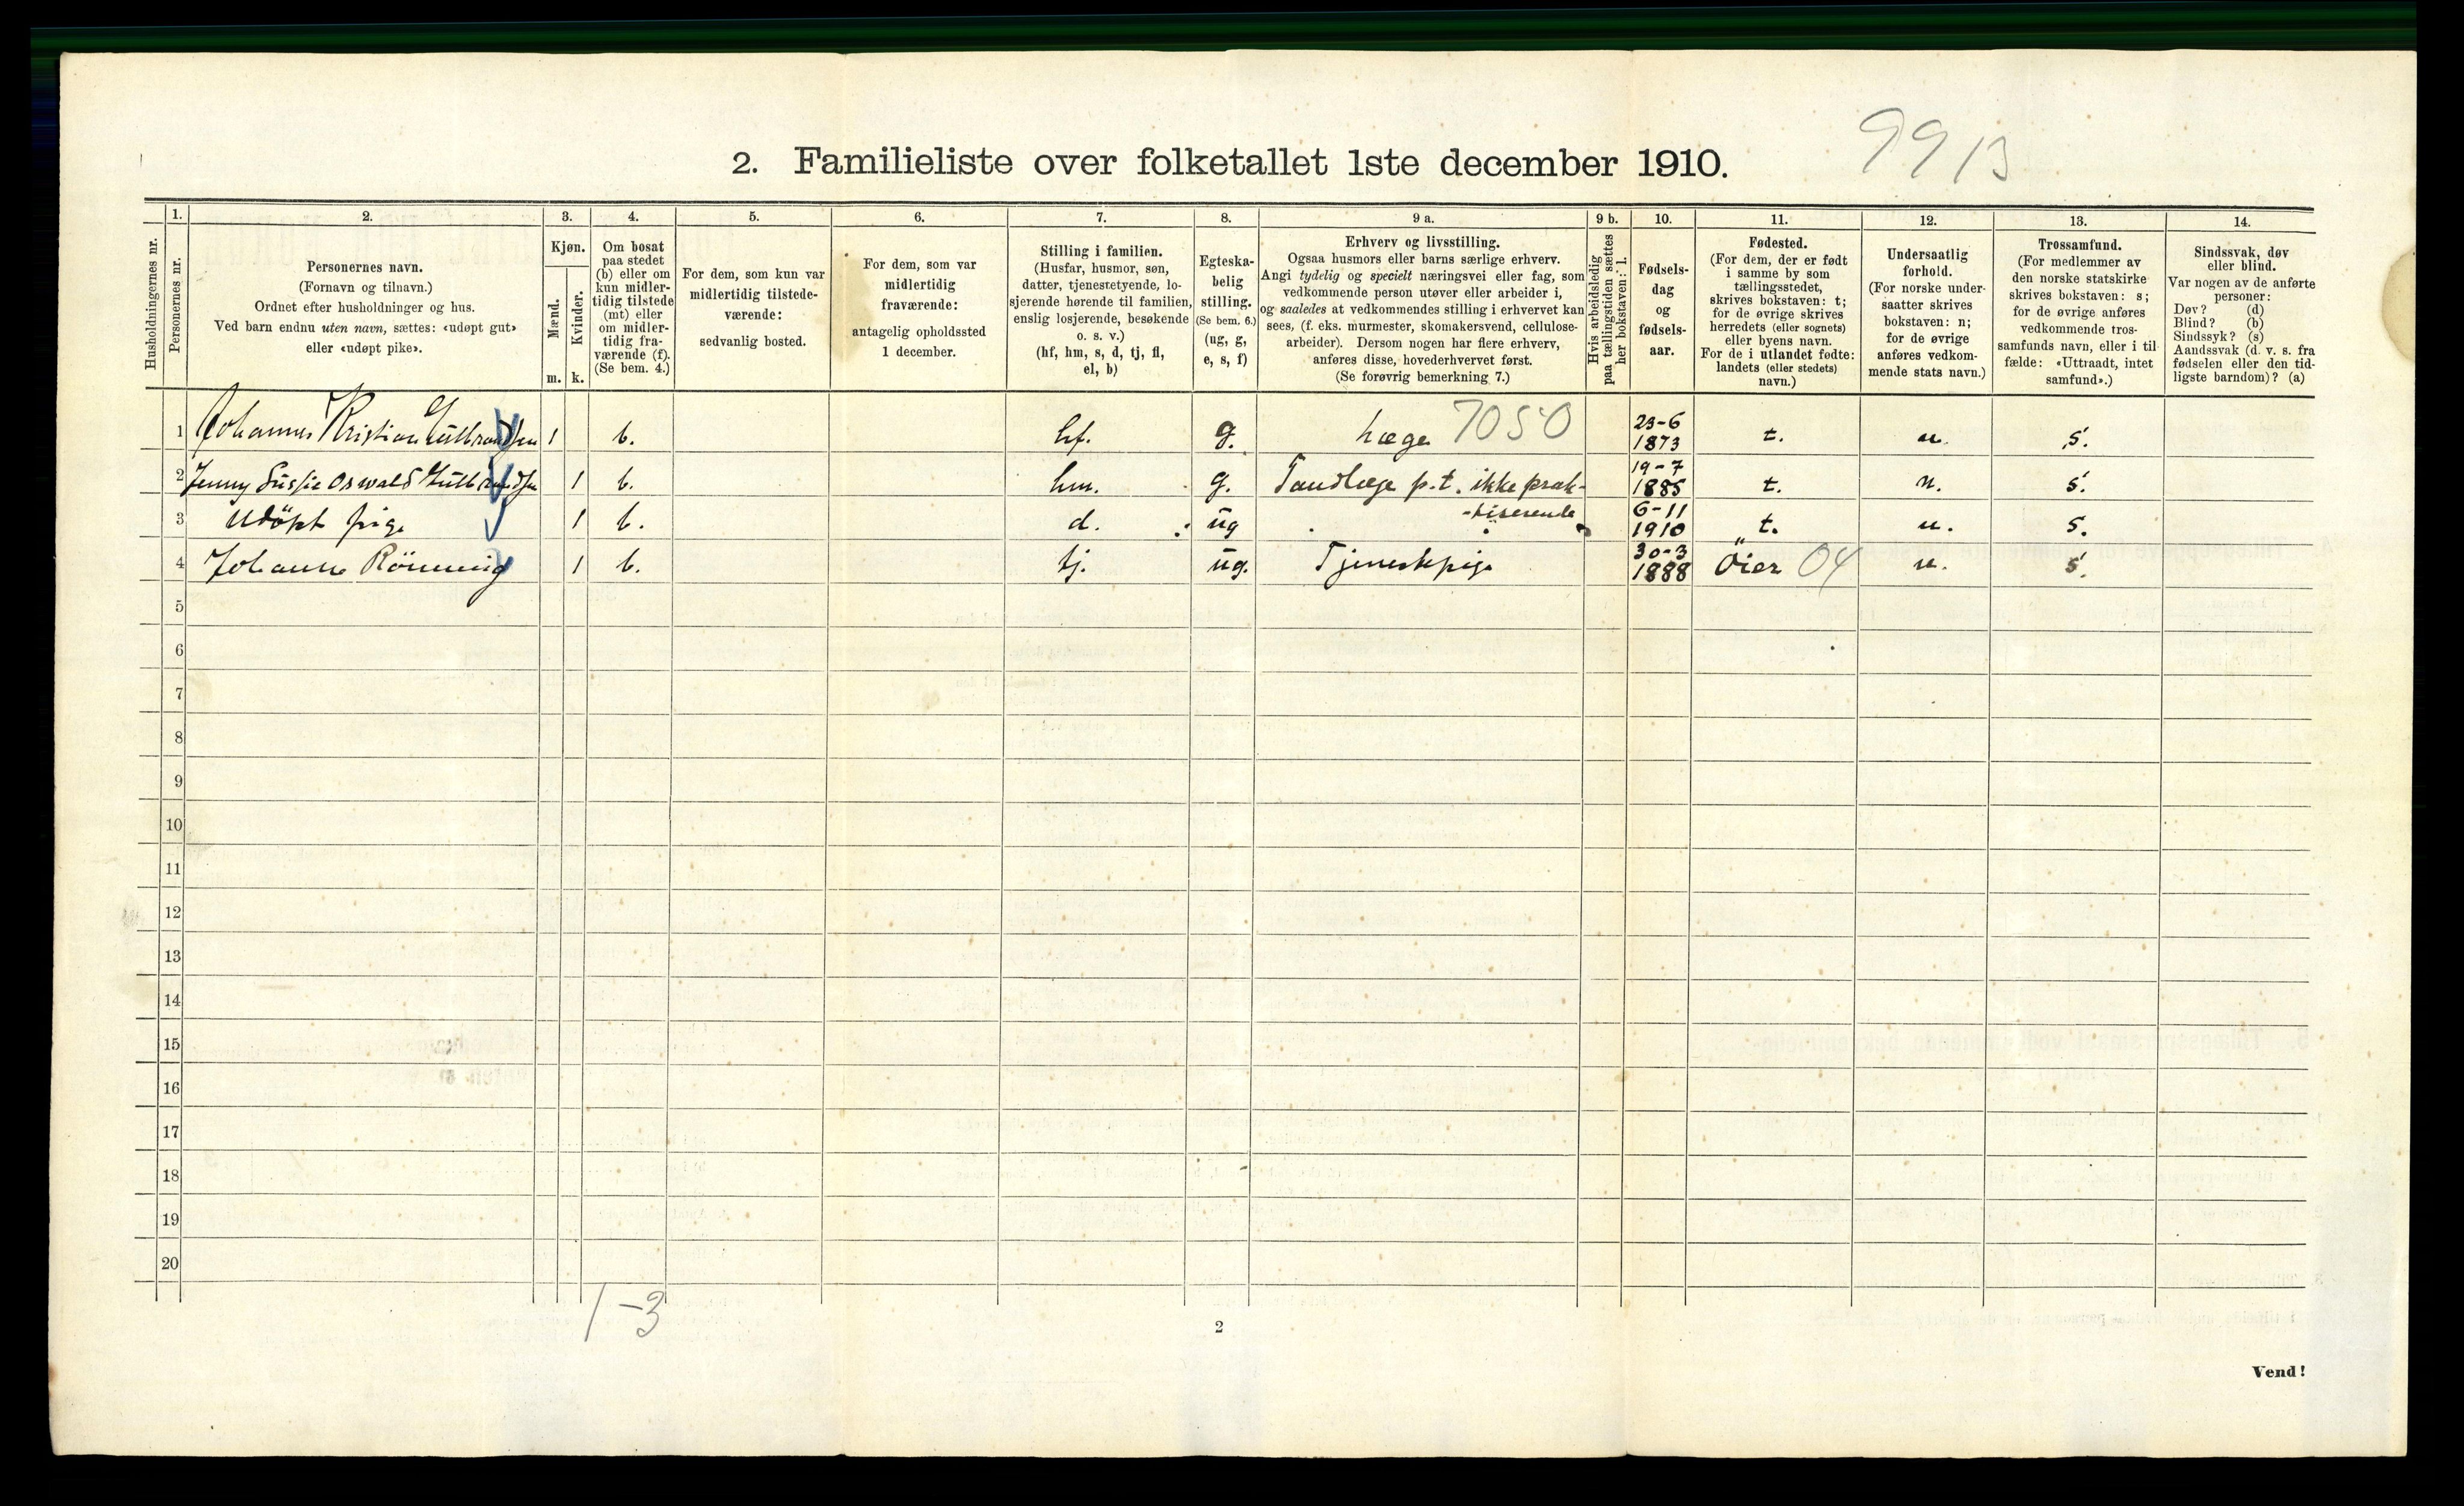 9913
2. Familieliste over folketallet 1ste december 1910.
1. 2. 3. 4. 5. 6. 7. 8. 9 a. 9 b. 10. 11. 12. 13. 14.
Husholdningernes nr.
Personernes nr.
Personernes navn.
(Fornavn og tilnavn.)
Ordnet efter husholdninger og hus.
Ved barn endnu uten navn, sættes: «udøpt gut»
eller «udøpt pike».
Kjøn.
Mænd.
m.
Kvinder.
k.
Om bosat
paa stedet
(b) eller om
kun midler-
tidig tilstede
(mt) eller
om midler-
tidig fra-
værende (f).
(Se bem. 4.)
For dem, som kun var
midlertidig tilstede-
værende:
sedvanlig bosted.
For dem, som var
midlertidig
fraværende:
antagelig opholdssted
1 december.
Stilling i familien.
(Husfar, husmor, søn,
datter, tjenestetyende, lo-
sjerende hørende til familien,
enslig losjerende, besøkende
o. s. v.)
(hf, hm, s, d, tj, fl,
el, b)
Egteska-
belig
stilling.
(Se bem. 6.)
(ug, g,
e, s, f)
Erhverv og livsstilling.
Ogsaa husmors eller barns særlige erhverv.
Angi tydelig og specielt næringsvei eller fag, som
vedkommende person utøver eller arbeider i,
og saaledes at vedkommendes stilling i erhvervet kan
sees, (f. eks. murmester, skomakersvend, cellulose-
arbeider). Dersom nogen har flere erhverv,
anføres disse, hovederhvervet først.
(Se forøvrig bemerkning 7.)
Hvis arbeidsledig
paa tællingstiden sættes
her bokstaven: l.
Fødsels-
dag
og
fødsels-
aar.
Fødested.
(For dem, der er født
i samme by som
tællingsstedet,
skrives bokstaven: t;
for de øvrige skrives
herredets (eller sognets)
eller byens navn.
For de i utlandet fødte:
landets (eller stedets)
navn.)
Undersaatlig
forhold.
(For norske under-
saatter skrives
bokstaven: n;
for de øvrige
anføres vedkom-
mende stats navn.)
Trossamfund.
(For medlemmer av
den norske statskirke
skrives bokstaven: s;
for de øvrige anføres
vedkommende tros-
samfunds navn, eller i til-
fælde: «Uttraadt, intet
samfund».)
Sindssvak, døv
eller blind.
Var nogen av de anførte
personer:
Døv? (d)
Blind? (b)
Sindssyk? (s)
Aandssvak (d. v. s. fra
fødselen eller den tid-
ligste barndom)? (a)
1 Johannes Kristian Gulbrandsen 1 b. hf. g. Læge 7050 23-6 1873 t. n. s.
2 Jenny Oswald Gulbrandsen 1 b. hm. g. Tandlæge p.t. ikke prak- 19-7 1885 t. n. s.
-tiserende
3 Udöpt pige 1 b. d. ug 6-11 1910 t. n. s.
4 Johanne Rönning 1 b. tj. ug. Tjenestpige 30-3 1888 Öier 04 n. s.
5
6
7
8
9
10
11
12
13
14
15
16
17
18
19
20
1-3
2
Vend!